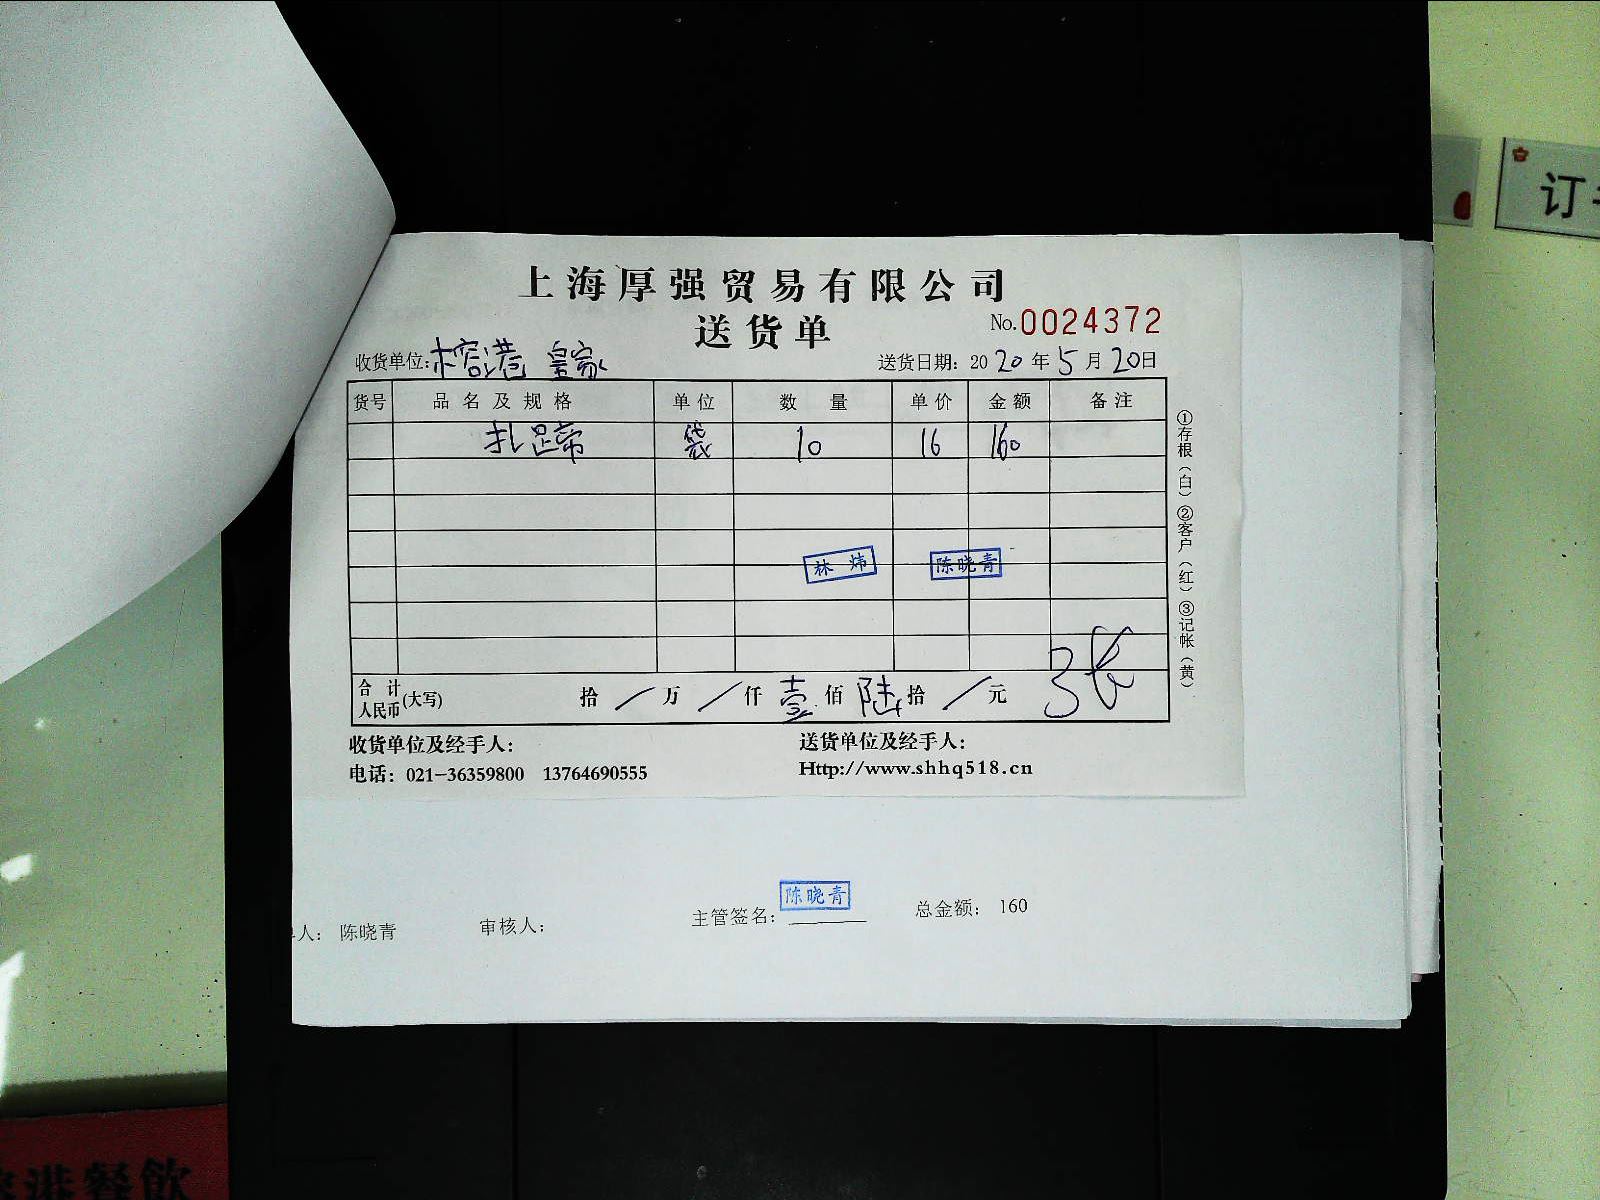 上海厚强贸易有限公司
送货单
No.0024372
收货单位:榕港 皇家
送货日期: 2020年5月20日
货号 品名及规格 单位 数量 单价 金额 备注
扎 带 袋 10 16 160
林炜 陈晓青
合计人民币(大写) 拾/万/仟壹佰陆拾/元
①存根(白)②客户(红)③记帐(黄)
收货单位及经手人: 送货单位及经手人:
电话: 021-36359800 13764690555 Http://www.shhq518.cn
人: 陈晓青 审核人: 主管签名: 陈晓青 总金额: 160
订
港餐飲